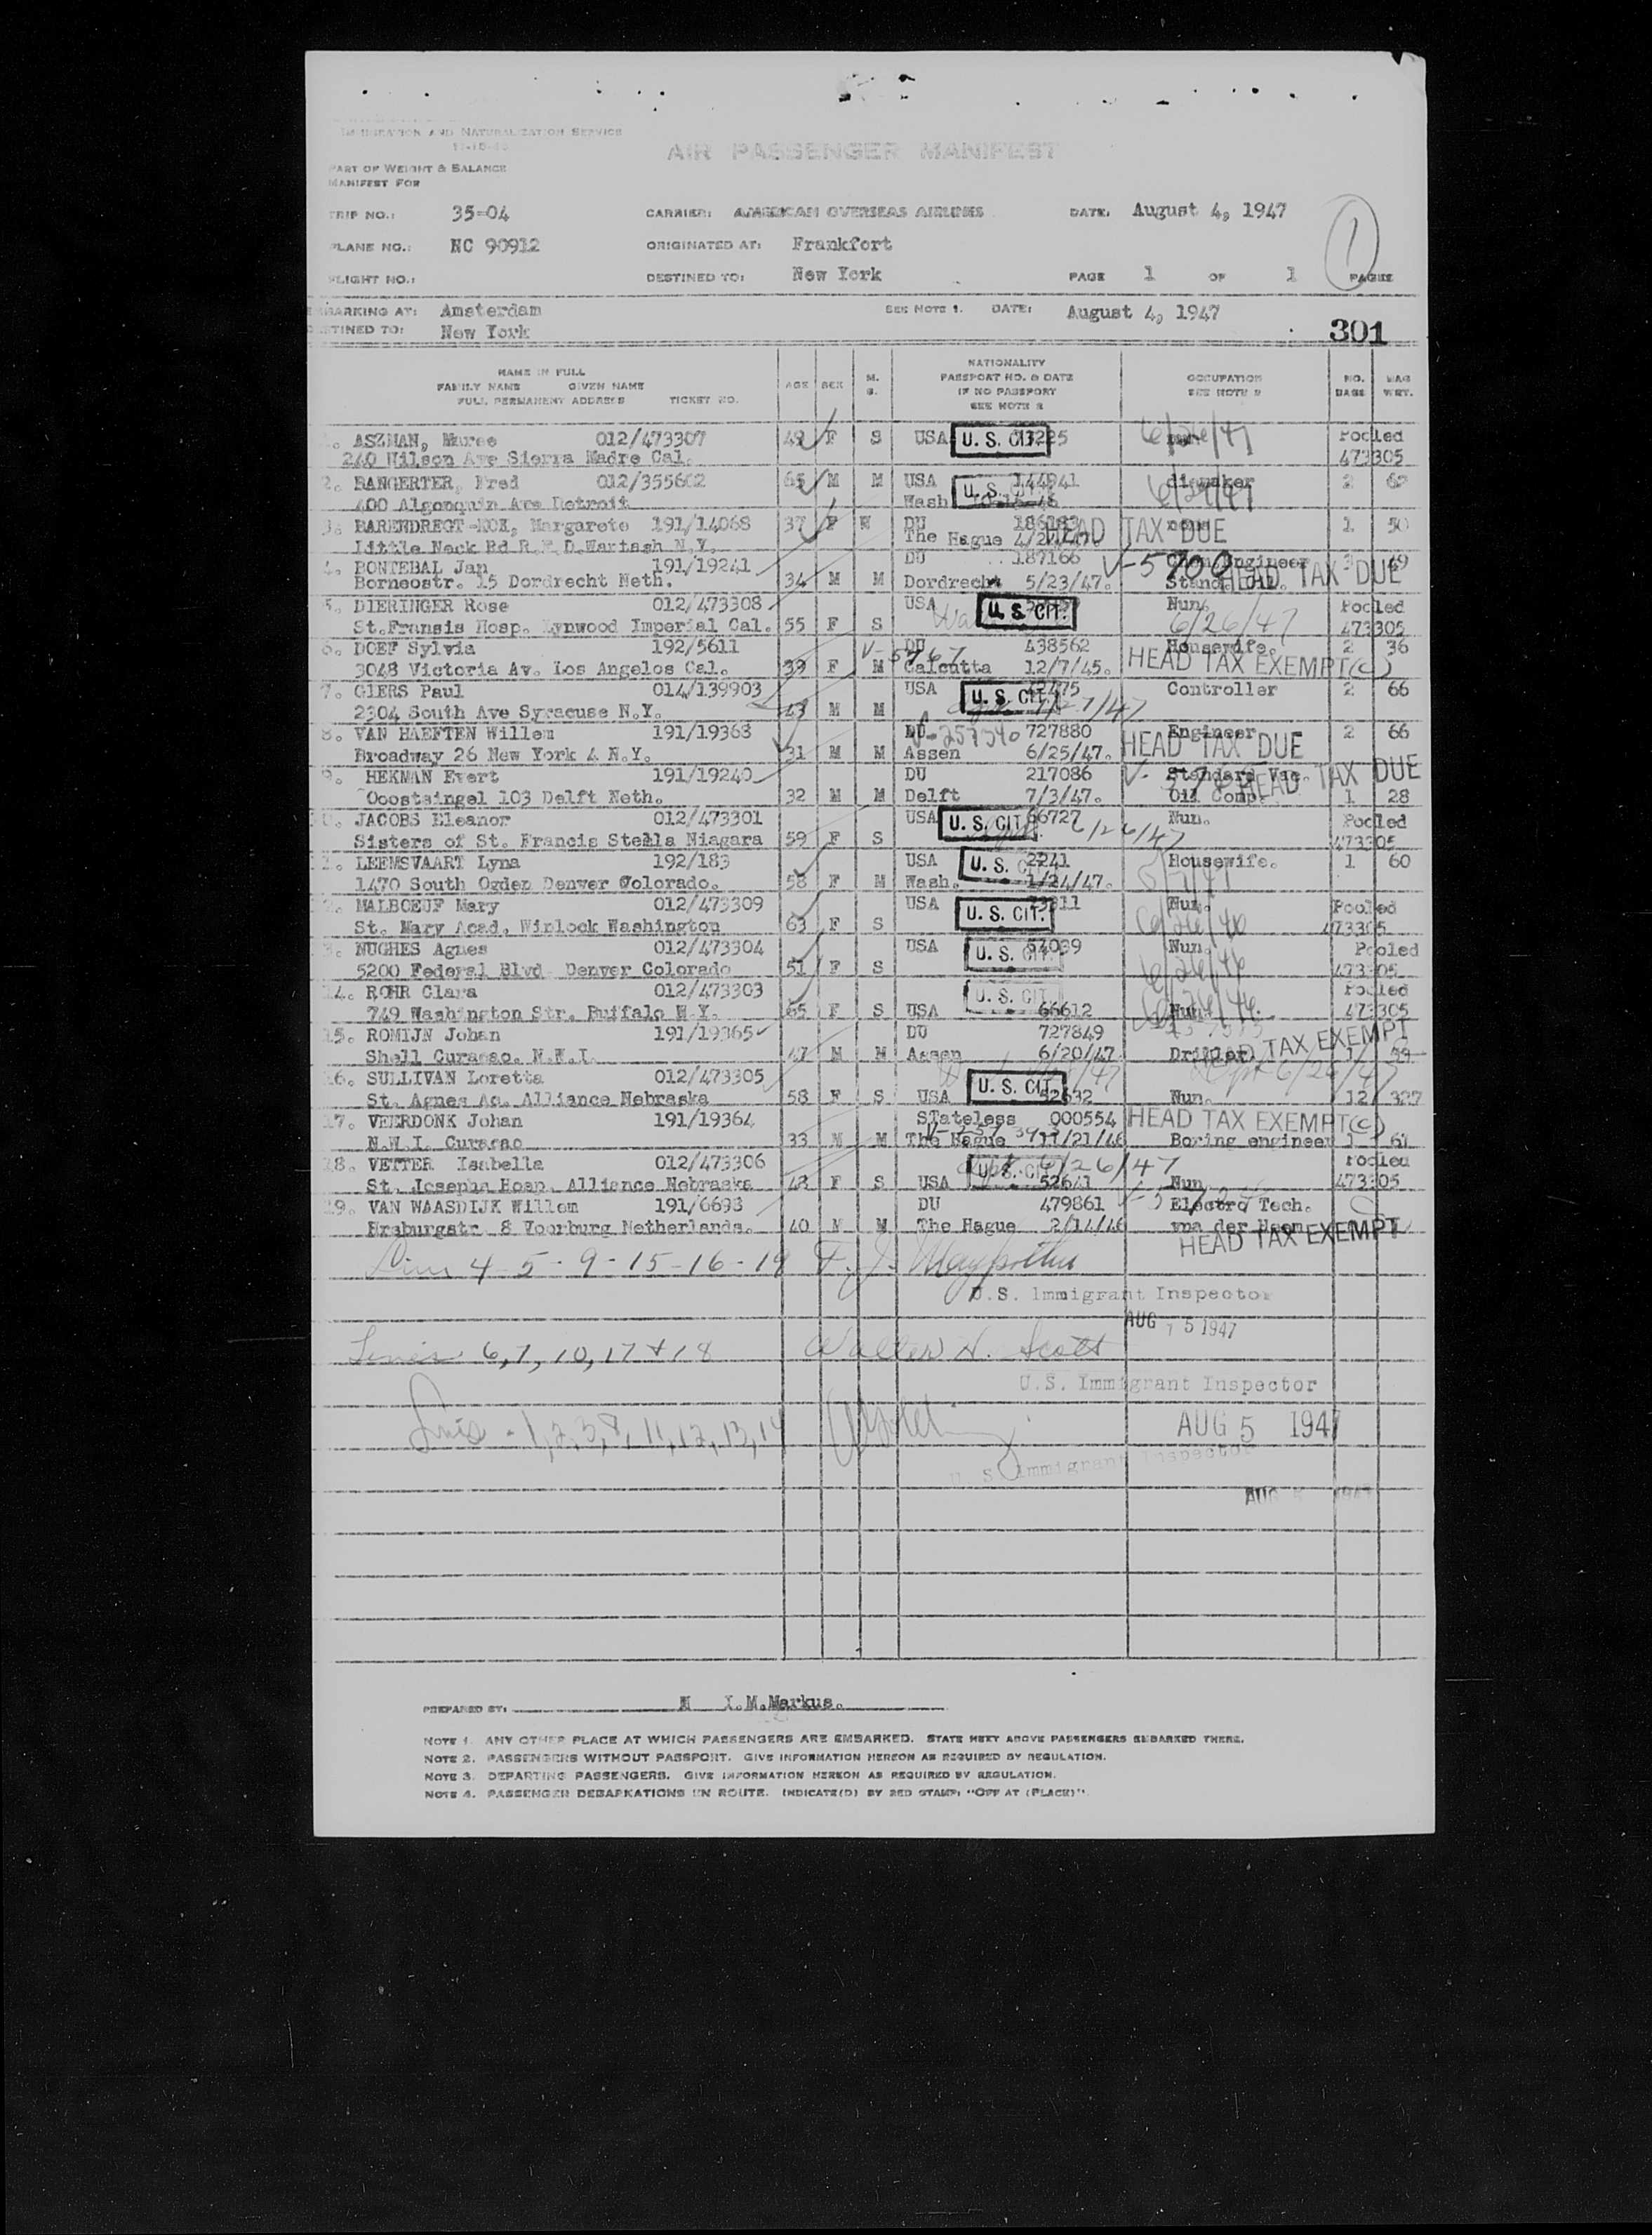 IMMIGRATION AND NATURALIZATION SERVICE
AIR PASSENGER MANIFEST
PART OF WEIGHT & BALANCE
MANIFEST FOR
TRIP NO.: 35-04 CARRIER: AMERICAN OVERSEAS AIRLINES DATE: August 4, 1947
PLANE NO.: NC 90912 ORIGINATED AT: Frankfort
FLIGHT NO.: DESTINED TO: New York PAGE 1 OF 1 PAGES
1
EMBARKING AT: Amsterdam SEE NOTE 1. DATE: August 4, 1947
DESTINED TO: New York 301
NAME IN FULL
FAMILY NAME GIVEN NAME
FULL PERMANENT ADDRESS TICKET NO.
AGE SEX M. S.
NATIONALITY
PASSPORT NO. & DATE
IF NO PASSPORT
SEE NOTE 2
OCCUPATION
SEE NOTE 2
NO. BAGS BAG WRT.
1. ASZMAN, Maree 012/473307 49 F S USA U. S. CIT 6/26/47 Pooled
240 Wilson Ave Sierra Madre Cal. 473305
2. BANGERTER, Fred 012/355602 65 M M USA 144941 diemaker 2 62
400 Algonquin Ave Detroit Wash U. S.
3. BARENDREGT-KOX, Margarete 191/14068 37 F DU 186183 none 1 50
Little Neck Rd R.F.D. N.Y. The Hague HEAD TAX DUE
4. BONTEBAL Jan 191/19241 DU 187166 V-5700 Engineer 3 49
Borneostr. 15 Dordrecht Neth. 34 M M Dordrecht 5/23/47. HEAD TAX DUE
5. DIERINGER Rose 012/473308 USA U. S. CIT. Nun. Pooled
St.Fransis Hosp. Lynwood Imperial Cal. 55 F S 6/26/47 473305
6. DOEF Sylvia 192/5611 DU 438562 Housewife. 2 36
3048 Victoria Av. Los Angelos Cal. 39 F M Calcutta 12/7/45. HEAD TAX EXEMPT(c)
7. GIERS Paul 014/139903 USA U. S. CIT. Controller 2 66
2304 South Ave Syracuse N.Y. 43 M M
8. VAN HAEFTEN Willem 191/19368 DU 727880 Engineer 2 66
V-257340
Broadway 26 New York 4 N.Y. 31 M M Assen 6/25/47. HEAD TAX DUE
9. HEKMAN Evert 191/19240 DU 217086 Standard Vac. HEAD TAX DUE
Ooostsingel 103 Delft Neth. 32 M M Delft 7/3/47. Oil Comp. 1 28
10. JACOBS Eleanor 012/473301 USA U. S. CIT. 66727 Nun. Pooled
Sisters of St. Francis Stella Niagara 59 F S 6/26/47 473305
11. LEEMSVAART Lyna 192/183 USA U. S. 2241 Housewife. 1 60
1470 South Ogden Denver Colorado. 58 F M Wash. 1/24/47.
12. MALBOEUF Mary 012/473309 USA U. S. CIT. Nun. Pooled
St. Mary Acad. Winlock Washington 63 F S 6/26/46 473305
13. NUGHES Agnes 012/473304 USA U. S. CIT. Nun. Pooled
5200 Federal Blvd Denver Colorado 51 F S 6/26/46 473305
14. ROHR Clara 012/473303 U. S. CIT. Pooled
749 Washington Str. Buffalo N.Y. 65 F S USA 66612 Nun. 473305
15. ROMIJN Johan 191/19365 DU 727849
Shell Curacao. N.W.I. 47 M M Assen 6/20/47 Driller HEAD TAX EXEMPT
16. SULLIVAN Loretta 012/473305 U. S. CIT.
St. Agnes Ac. Alliance Nebraska 58 F S USA 52632 Nun. 12 327
17. VEERDONK Johan 191/19364 STateless 000554 HEAD TAX EXEMPT(c)
N.W.I. Curacao 33 M M The Hague 11/21/46 Boring engineer 1 61
18. VETTER Isabella 012/473306 U. S. CIT. 6/26/47 Pooled
St. Josephs Hosp. Alliance Nebraska 48 F S USA 52641 Nun 473305
19. VAN WAASDIJK Willem 191/6693 DU 479861 Electro Tech.
8 Voorburg Netherlands. 40 M M The Hague 2/14/46
HEAD TAX EXEMPT
4-5-9-15-16-19 F. J.
U.S. Immigrant Inspector
AUG 5 1947
Lines 6,7,10,17 + 18 Walter H. Scott
U.S. Immigrant Inspector
Lines - 1,2,3,8,11,12,13,14
AUG 5 1947
U. S. Immigrant Inspector
AUG 5 1947
PREPARED BY: M I.M.Markus.
NOTE 1. ANY OTHER PLACE AT WHICH PASSENGERS ARE EMBARKED. STATE NEXT ABOVE PASSENGERS EMBARKED THERE.
NOTE 2. PASSENGERS WITHOUT PASSPORT. GIVE INFORMATION HEREON AS REQUIRED BY REGULATION.
NOTE 3. DEPARTING PASSENGERS. GIVE INFORMATION HEREON AS REQUIRED BY REGULATION.
NOTE 4. PASSENGER DEBARKATIONS EN ROUTE. INDICATE(D) BY RED STAMP: "OFF AT (PLACE)".